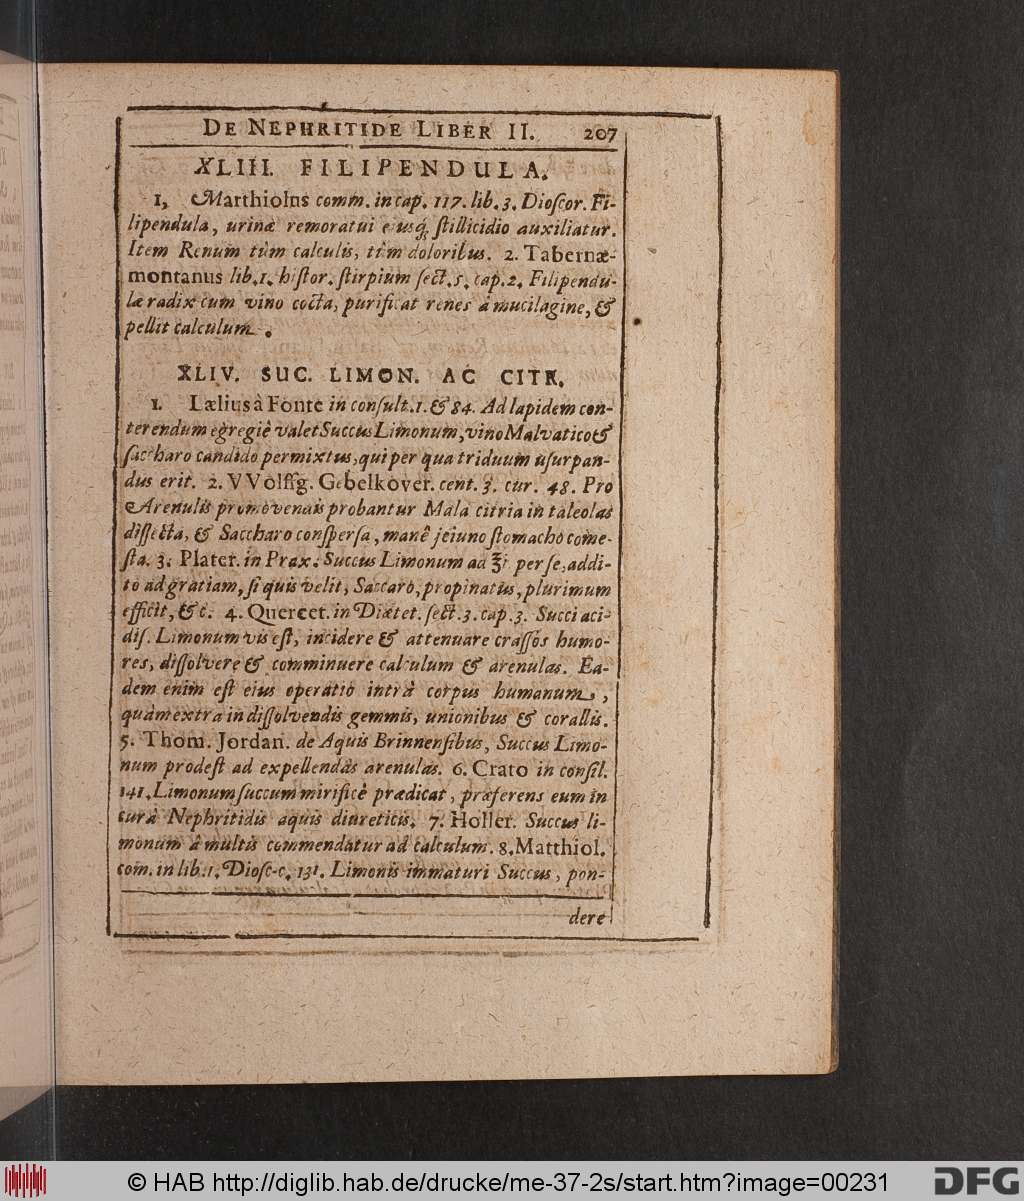 DE NEPHRITIDE LIBER II. 207
XLIII. FILIPENDULA.
1, Marthiolns comm. in cap. 117. lib. 3. Dioſcor. Fi-
lipendula, urinæ remoratui ejusq́; ſtillicidio auxiliatur.
Item Renum tùm calculis, tùm doloribus. 2. Tabernæ-
montanus lib. 1. hiſtor. ſtirpium ſect. 5. cap. 2. Filipendu-
læ radix cum vino cocta, purificat renes à mucilagine, &
pellit calculum.
XLIV. SUC. LIMON. AC CITR.
1. Lælius à Fonte in conſult. 1. & 84. Ad lapidem con-
terendum egregiè valet Succus Limonum, vino Malvatico &
ſaccharo candido permixtus, qui per quatriduum uſurpan-
dus erit. 2. VVolffg. Gebelkover. cent. 3. cur. 48. Pro
Arenulis promovendis probantur Mala citria in taleolas
diſſecta, & Saccharo conſperſa, manè jejuno ſtomacho come-
ſta. 3. Plater. in Prax. Succus Limonum ad ℥j per ſe, addi-
to ad gratiam, ſi quis velit, Saccaro, propinatus, plurimum
efficit, &c. 4. Quercet. in Diætet. ſect. 3. cap. 3. Succi aci-
diſ. Limonum vis eſt, incidere & attenuare craſſos humo-
res, diſſolvere & comminuere calculum & arenulas. Ea-
dem enim eſt eius operatio intrà corpus humanum,
quàm extra in diſſolvendis gemmis, unionibus & corallis.
5. Thom. Jordan. de Aquis Brinnenſibus, Succus Limo-
num prodeſt ad expellendas arenulas. 6. Crato in conſil.
141. Limonum ſuccum mirificè prædicat, præferens eum in
curâ Nephritidis aquis diureticis. 7. Holler. Succus li-
monum à multis commendatur ad calculum. 8. Matthiol.
com. in lib. 1. Dioſc. c. 131. Limonis immaturi Succus, pon-
dere
© HAB http://diglib.hab.de/drucke/me-37-2s/start.htm?image=00231
DFG